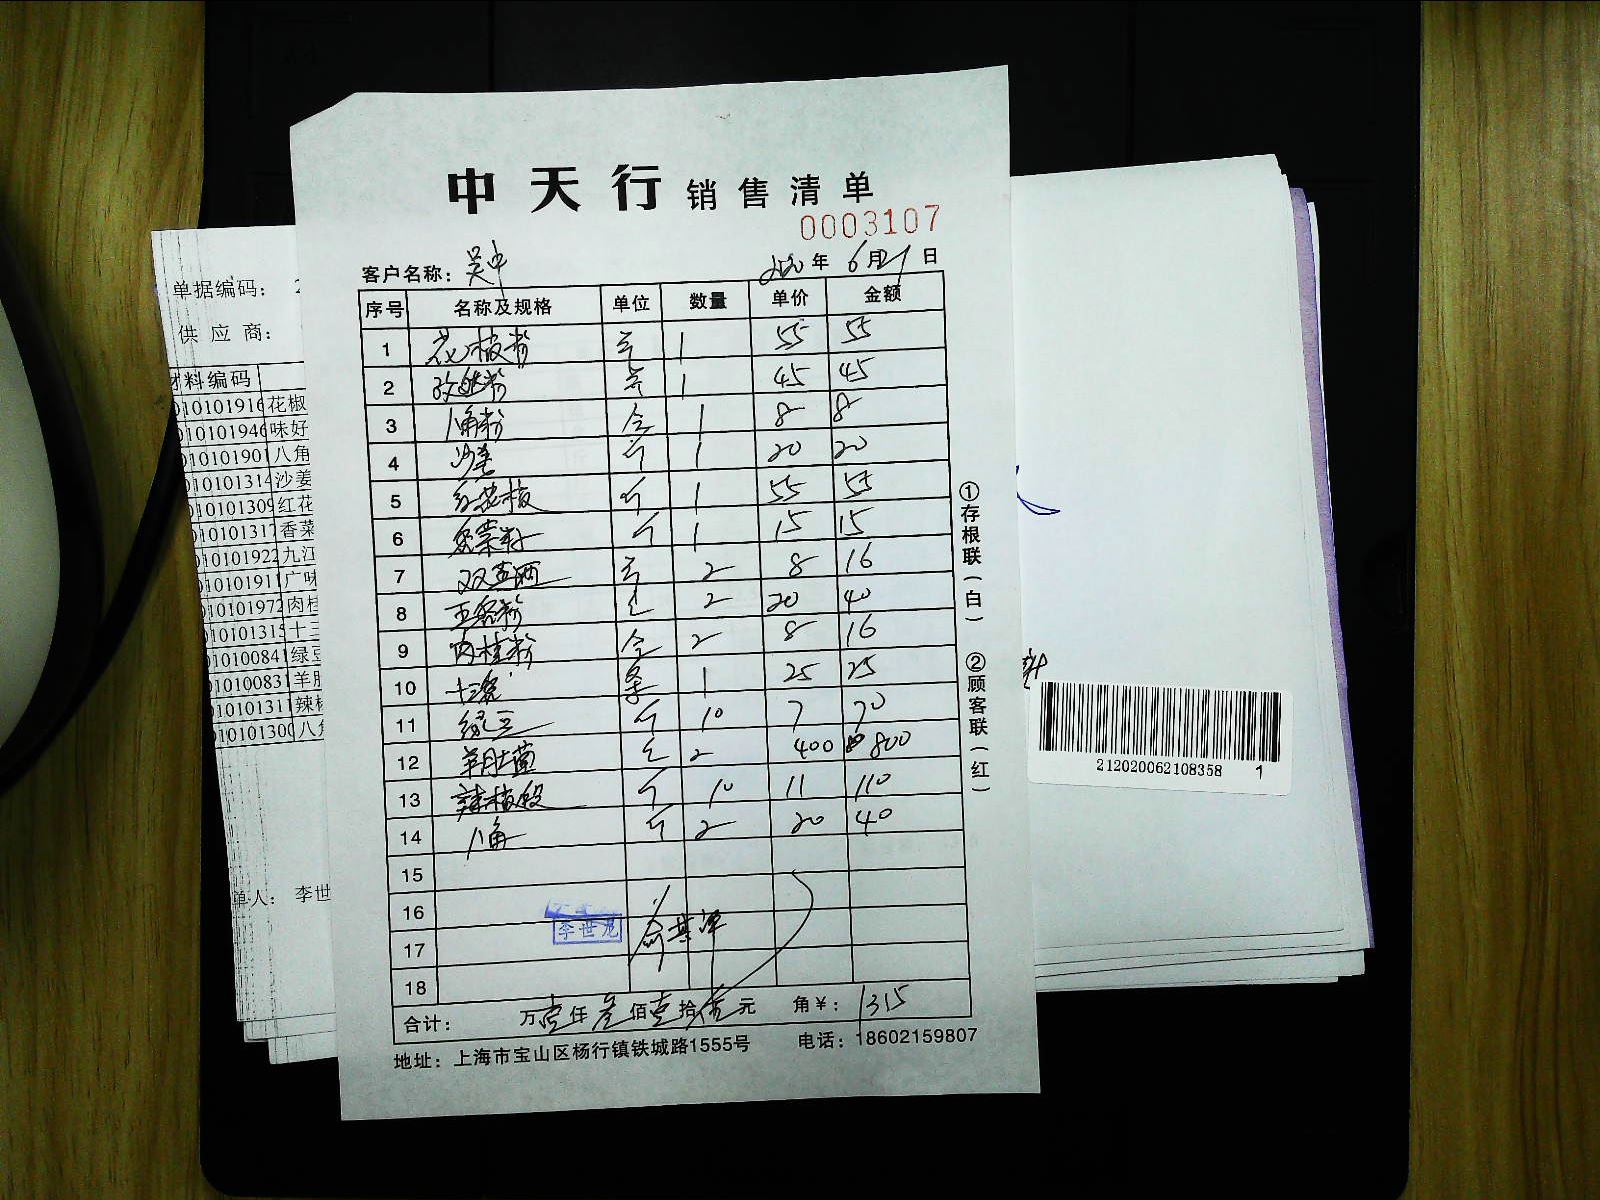 中天行 销售清单
0003107
客户名称: 吴中 2020年6月21日
序号 名称及规格 单位 数量 单价 金额
1 花椒粉 斤 1 55 55
2 孜然粉 斤 1 45 45
3 八角粉 合 1 8 8
4 沙姜 斤 1 20 20
5 红花椒 斤 1 55 55
6 香菜籽 斤 1 15 15
7 双蒸酒 2 8 16
8 五香粉 包 2 20 40
9 肉桂粉 合 2 8 16
10 十三香 条 1 25 25
11 绿豆 斤 10 7 70
12 羊肚菌 包 2 400 800
13 辣椒段 斤 10 11 110
14 八角 斤 2 20 40
15
16
17
18
李世龙
合计: 万壹仟叁佰壹拾伍元 角¥: 1315
地址: 上海市宝山区杨行镇铁城路1555号 电话: 18602159807
①存根联(白) ②顾客联(红)
单据编码: 2
供应商:
材料编码
0101019160 花椒
010101946 味好
010101901 八角
010101314 沙姜
010101309 红花
010101317 香菜
010101922 九江
010101911 广味
010101972 肉桂
010101315 十三
010100841 绿豆
010100831 羊肚
010101311 辣椒
010101300 八角
单人: 李世
212020062108358 1